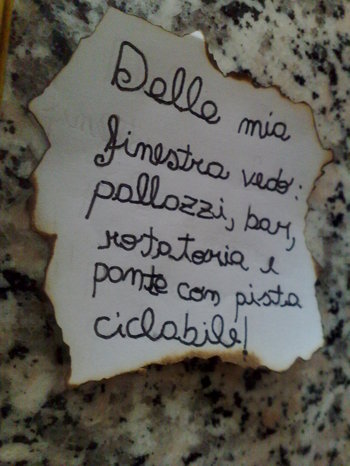 Delle mia
finestra vedo:
pallazzi, bar,
rotatoria e
ponte con pista
ciclabile!